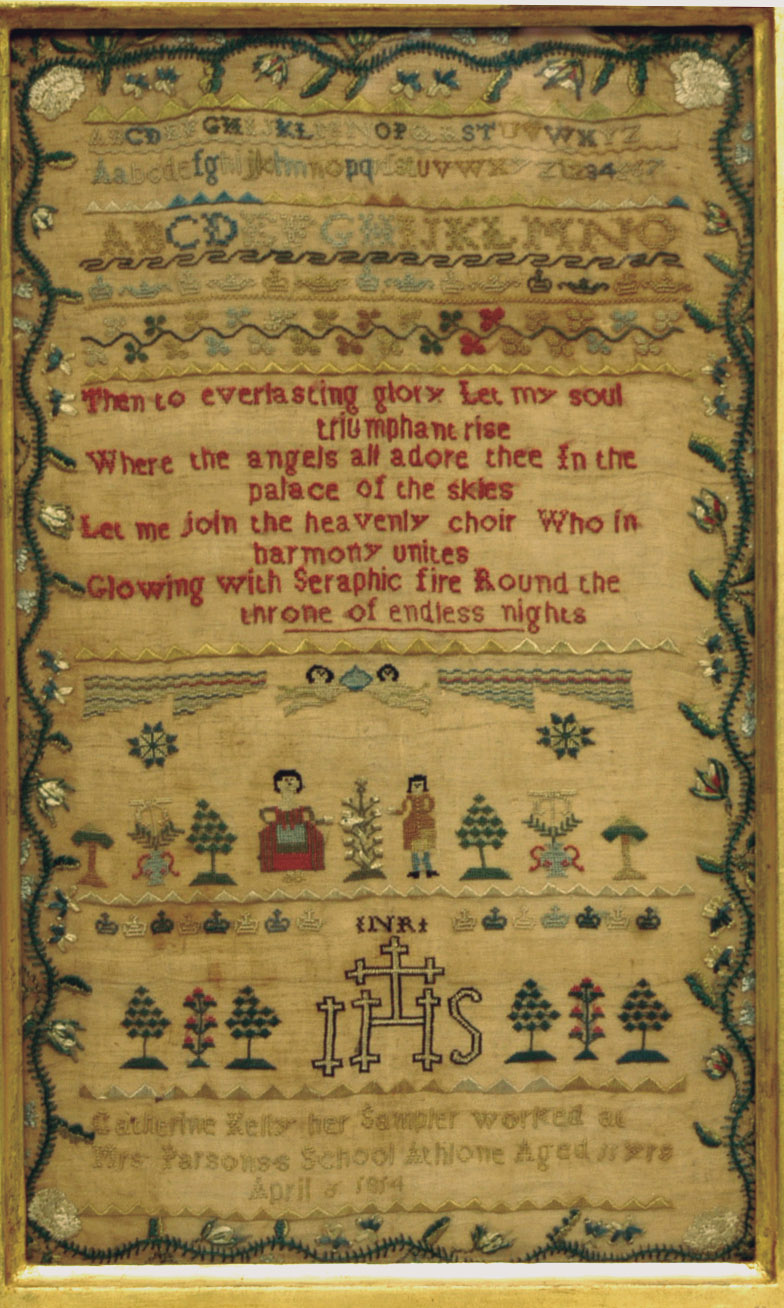 ABCDEFGHIJKLMNOPQRSTUVWXYZ
Aabcdefghijklmnopqrstuvwxyz1234567
ABCDEFGHIJKLMNO
Then to everlasting glory Let my soul
triumphant rise
Where the angels all adore thee In the
palace of the skies
Let me join the heavenly choir Who in
harmony unites
Glowing with Seraphic fire Round the
throne of endless nights
INRI
IHS
Catherine Kelly her Sampler worked at
Mrs Parsons-s School Athlone Aged 11 yrs
April 1814